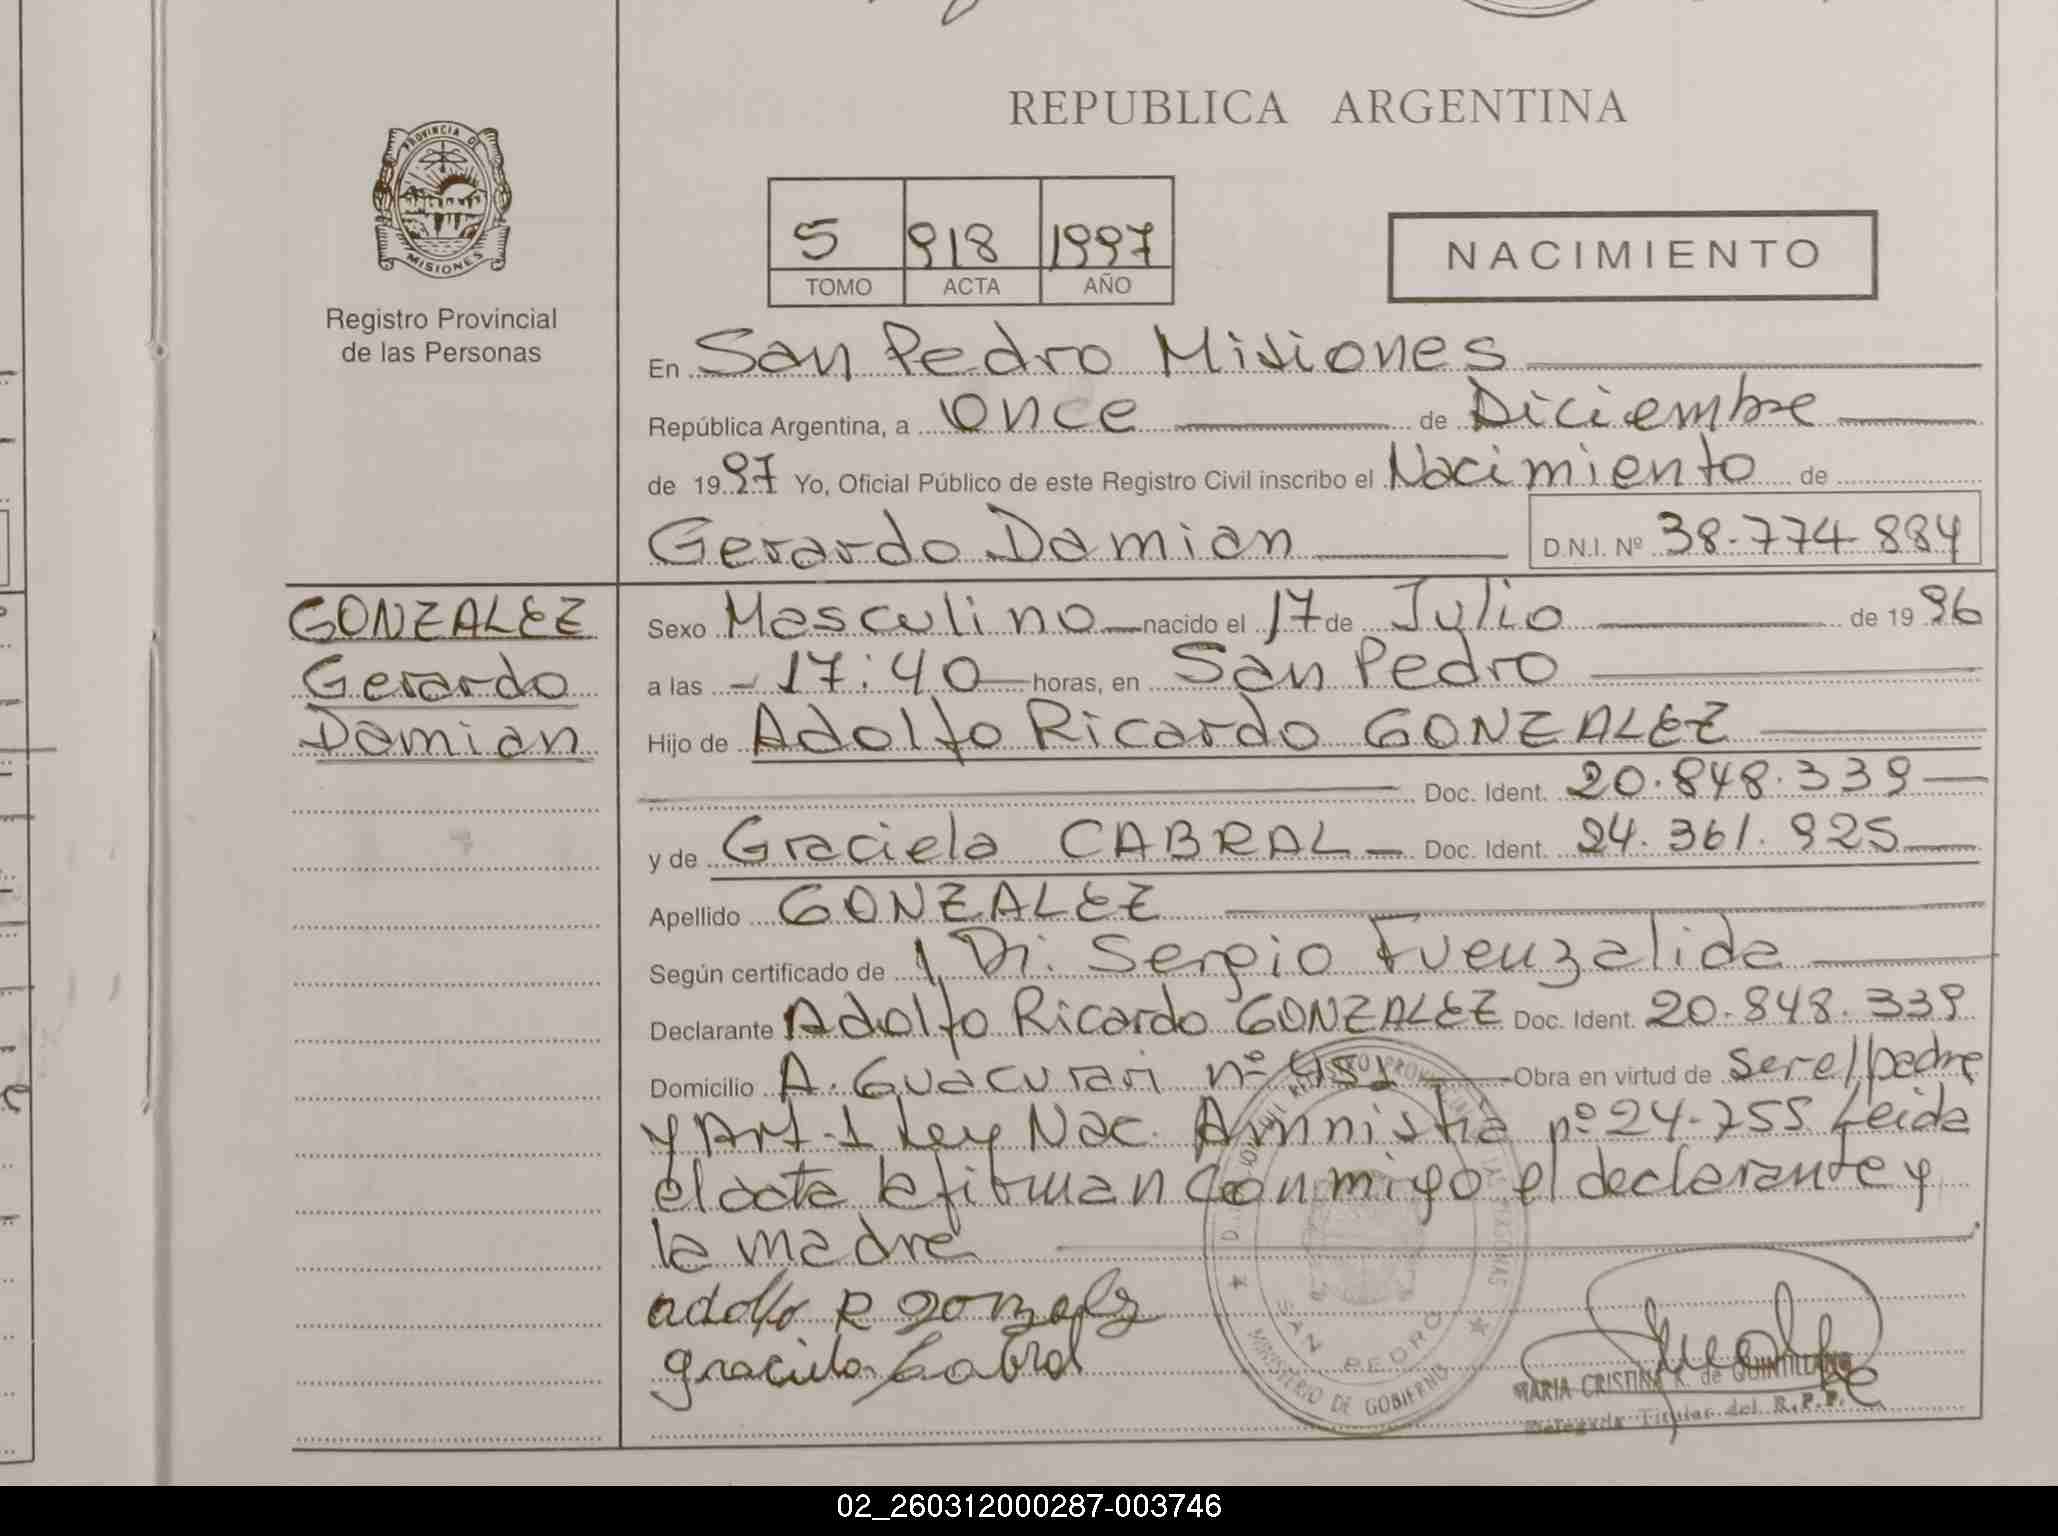 REPUBLICA ARGENTINA
PROVINCIA DE
MISIONES
Registro Provincial
de las Personas
5 918 1997
TOMO ACTA AÑO
NACIMIENTO
En San Pedro Misiones
República Argentina, a once de Diciembre
de 1997 Yo, Oficial Público de este Registro Civil inscribo el Nacimiento de
Gerardo Damian D.N.I. Nº 38.774.884
GONZALEZ
Gerardo
Damian
Sexo Masculino nacido el 17 de Julio de 1996
a las 17:40 horas, en San Pedro
Hijo de Adolfo Ricardo GONZALEZ
Doc. Ident. 20.848.339
y de Graciela CABRAL Doc. Ident. 24.361.925
Apellido GONZALEZ
Según certificado de Dr. Sergio Fuenzalida
Declarante Adolfo Ricardo GONZALEZ Doc. Ident. 20.848.339
Domicilio A. Guacurari nº 951 Obra en virtud de ser el padre
y Art. 1 Ley Nac. Amnistia nº 24.755 Leida
el acta la firman conmigo el declarante y
la madre
adolfo R gonzalz
graciela Cabral
SAN PEDRO
MINISTERIO DE GOBIERNO
MARIA CRISTINA R. de QUINTILLANO
Delegada Titular del R.P.P.
02_260312000287-003746